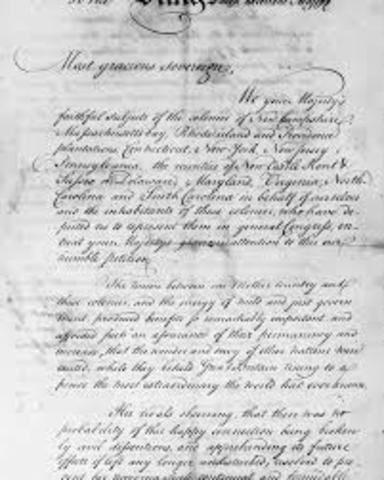 To the Kings most excellent Majesty
Most gracious sovereign,
We your Majesty's
faithful subjects of the colonies of New hampshire
Massachusetts bay, Rhode island and Providence
plantations, Connecticut, New York, New Jersey
Pennsylvania, the counties of New Castle Kent &
Sussex on Delaware, Maryland, Virginia, North
Carolina and South Carolina in behalf of ourselves
and the inhabitants of these colonies, who have de-
puted us to represent them in general Congress, en-
treat your Majestys gracious attention to this our
humble petition.
The union between our Mother country and
these colonies, and the energy of mild and just govern
ment, produced benefits so remarkably important and
afforded such an assurance of their permanency and
increase, that the wonder and envy of other nations were
excited, while they beheld Great Britain rising to a
power the most extraordinary the world had ever known.
Her rivals observing, that there was no
probability of this happy connection being broken
by civil dissentions, and apprehending its future
effects if left any longer undisturbed, resolved to pre-
vent her receiving such continual and formidable